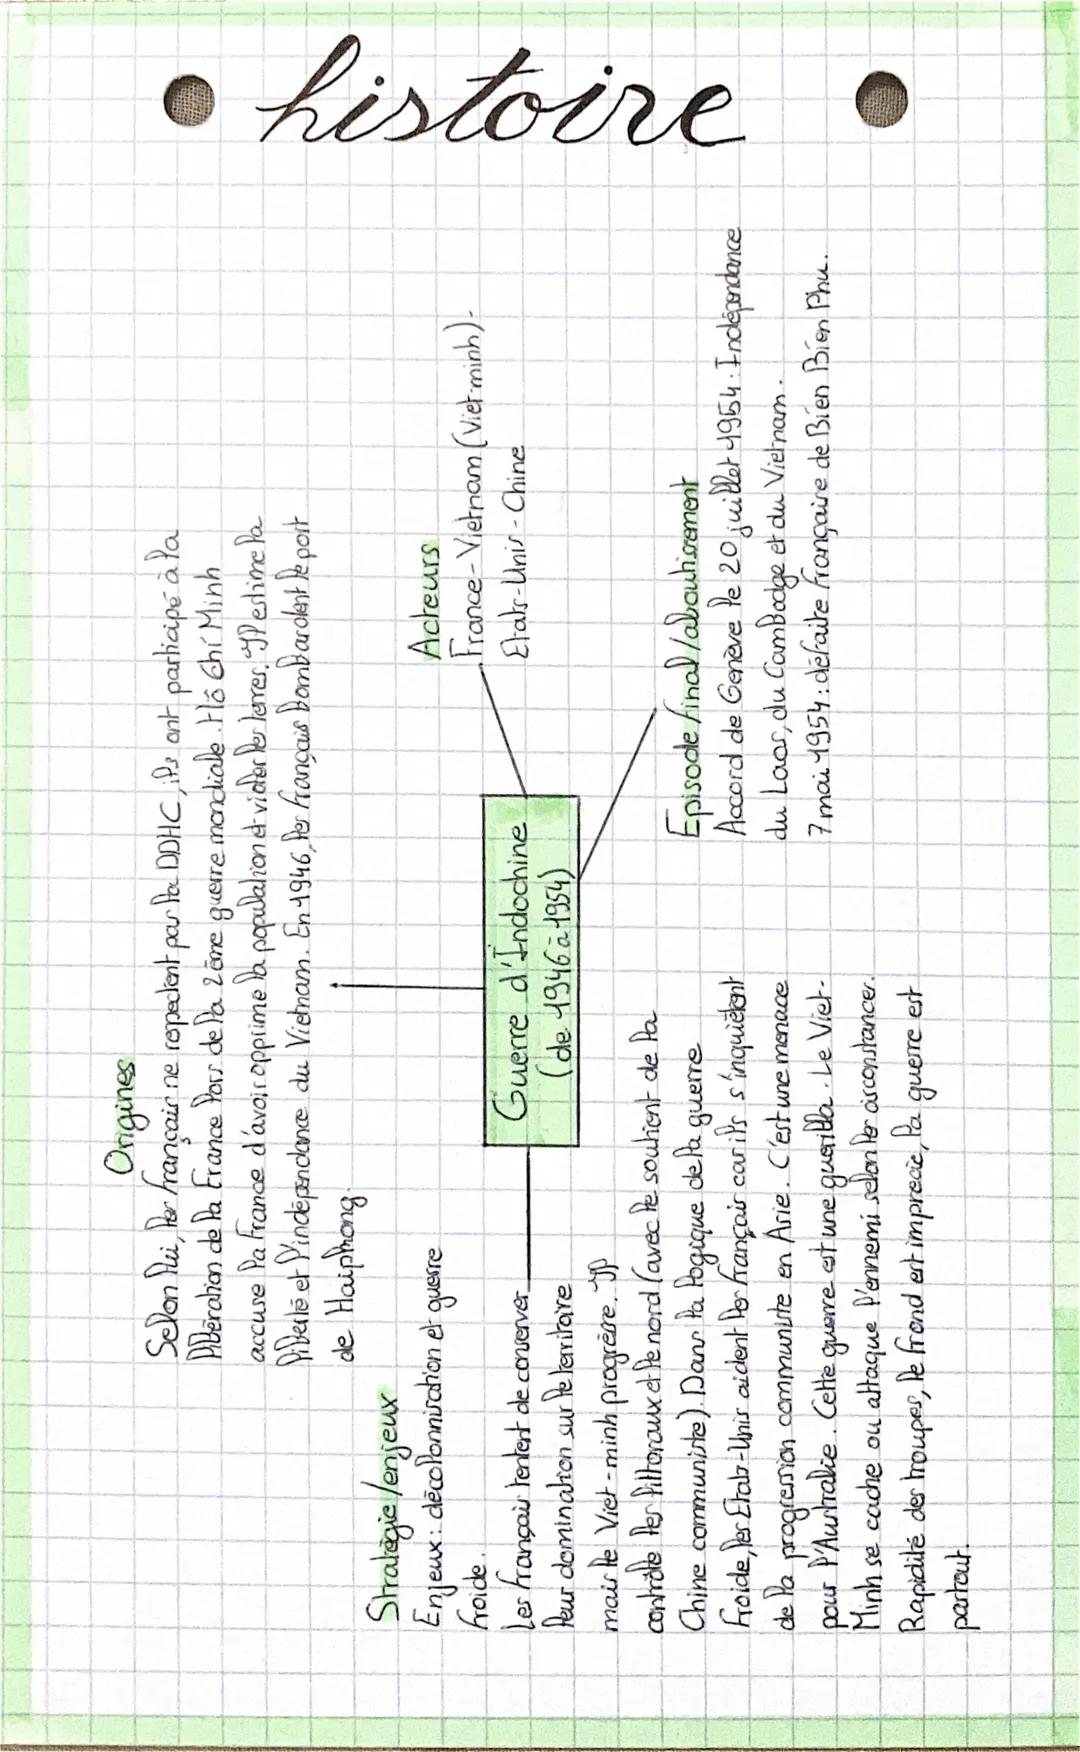 histoire
Origines
Selon lui, les français ne respectent pas la DDHC, ils ont participé à la
libération de la France lors de la 2ème guerre mondiale. Hô Chi Minh
accuse la France d'avoir opprime la population et violer les terres. Il estime la
liberté et l'indépendance du Vietnam. En 1946, les français bombardent le port
de Haiphong.
Acteurs
France - Vietnam (Viet-minh) -
Etats-Unis - Chine
Guerre d'Indochine
(de 1946 à 1954)
Stratégie/enjeux
Enjeux: décolonnisation et guerre
froide.
Les français tentent de conserver
leur domination sur le territoire
mais le Viet-minh progresse. Il
contrôle les littoraux et le nord (avec le soutient de la
Chine communiste). Dans la logique de la guerre
froide, les Etats-Unis aident les français car ils s'inquiètent
de la progression communiste en Asie. C'est une menace
pour l'Australie. Cette guerre est une guérilla. Le Viet-
Minh se cache ou attaque l'ennemi selon les circonstances.
Rapidité des troupes, le frond est imprecie, la guerre est
partout.
Episode final/aboutissement
Accord de Genève le 20 juillet 1954: Indépendance
du Laos, du Cambodge et du Vietnam.
7 mai 1954: défaite française de Bien Bien Phu.